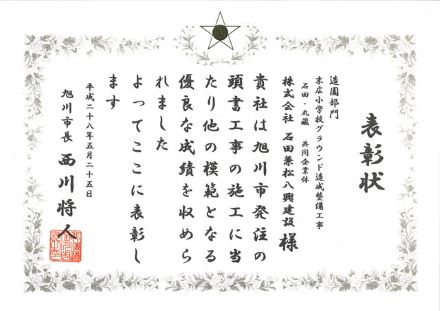 表彰状
造園部門
末広小学校グラウンド造成整備工事
石田・丸蔵 共同企業体
株式会社 石田兼松八興建設 様
貴社は旭川市発注の
頭書工事の施工に当
たり他の模範となる
優良な成績を収めら
れました
よってここに表彰し
ます
平成二十八年五月二十五日
旭川市長 西川将人